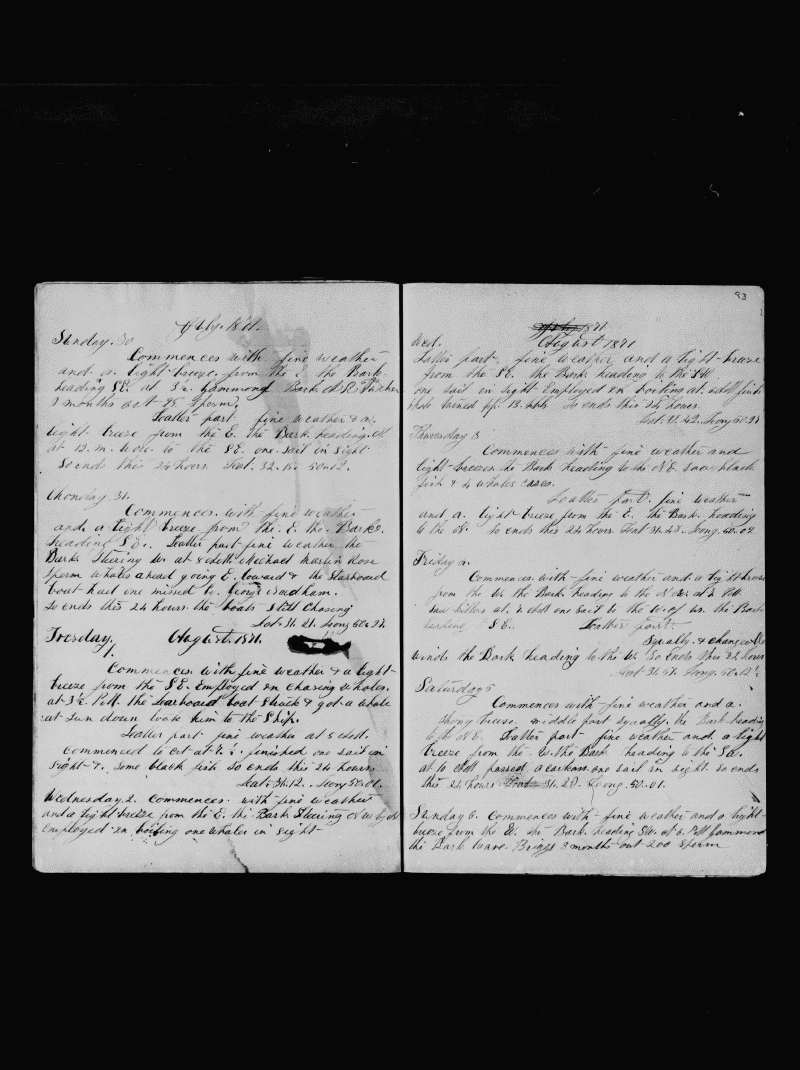 July. 1871.
Sunday. 30
Commences with fine weather
and a light breeze from the E. the Bark
heading SE. at 3½ gammong Bark
7 months out 95 Sperm,
Latter part fine weather & a
light breeze from the E. the Bark heading
at 12. m. to the SE. one sail in sight
So ends this 24 hours. Lat. 32.15. 50.12.
Monday 31.
Commences with fine weather
and a light breeze from the E. the Bark
heading SE. Latter part fine weather the
Bark Steering W. at 8 Michael Martin
Sperm whales ahead going E. loward & the starboard
boat had one missed
So ends this 24 hours the boats still chasing
Lat. 31.21. Long 50.22
Tuesday. August. 1871.
1.
Commences with fine weather & a light
breeze from the SE. Employed in chasing whales.
at 3½ P.M. the Larboard boat Struck & got a whale
at sun down took him to the Ship.
Latter part fine weather at 8
commenced to cut at finished one sail in
sight & some black fish so ends this 24 hours
Lat. 31.12. Long 50.01.
Wednesday 2. Commences with fine weather
and a light breeze from the E. the Bark Steering
Employed in boiling one whaler in sight
93
July 1871
August 1871
Wed.
Latter part, fine weather and a light breeze
from the SE. the Bark heading to the SW
one sail in sight Employed in boiling at
turned off. 13. bbls So ends this 24 hours.
Lat. 31.42. Long 50.
Thursday 3
Commences with fine weather and
light breezes the Bark heading to the NE. saw black
fish &
Latter part. fine weather
and a light breeze from the E. the Bark heading
to the N. So ends this 24 hours Lat 31.27. Long. 50.09
Friday 4.
Commences with fine weather and a light breeze
from the W. the Bark heading to the
saw killers at one sail to the W. of us. the Bark
heading SE. Latter part
Squally & changeable
winds the Bark heading to the W. So Ends this 24 hours
Lat 31.57. Long. 50.12½
Saturday 5
Commences with fine weather and a
strong breeze. middle part squally. the Bark heading
to the NE. Latter part fine weather and a light
breeze from the E. the Bark heading to the
at 10 passed a carkass one sail in sight. so ends
this 24 hours Lat. 31.27. Long. 50.01.
Sunday 6. Commences with fine weather and a light
breeze from the the Bark heading SW. at 6. P.M gammond
the Bark Briggs 3 months out 200 Sperm